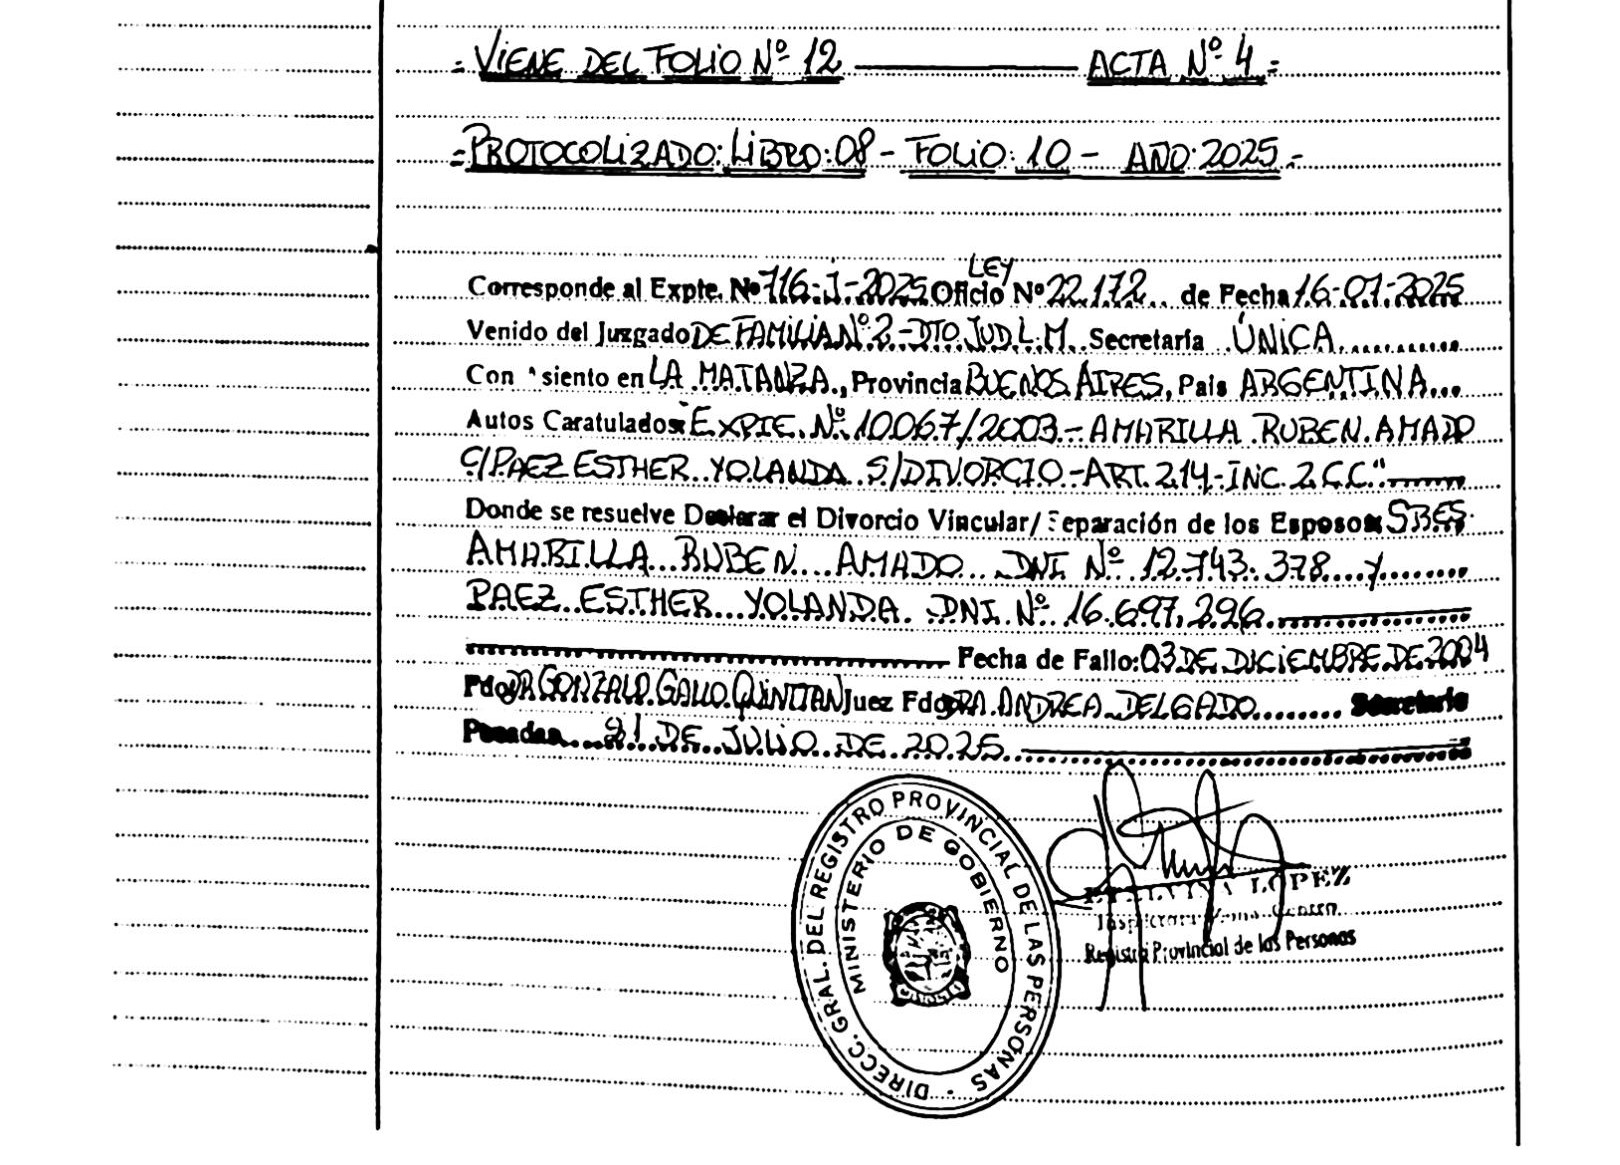 = VIENE DEL FOLIO Nº 12 ——— ACTA Nº 4 =
= PROTOCOLIZADO: LIBRO: 08 - FOLIO: 10 - AÑO: 2025 =
LEY
Corresponde al Expte. Nº 716-J-2025 Oficio Nº 22.172 de Fecha 16-07-2025
Venido del Juzgado DE FAMILIA Nº 2 - DTO. JUD. L.M. Secretaría ÚNICA
Con siento en LA MATANZA, Provincia BUENOS AIRES, País ARGENTINA
Autos Caratulados: "EXPTE. Nº 10067/2003 - AMARILLA RUBEN AMADO
C/PAEZ ESTHER YOLANDA S/DIVORCIO - ART. 214 - INC. 2 C.C."
Donde se resuelve Declarar el Divorcio Vincular/ Separación de los Esposos SRES.
AMARILLA RUBEN AMADO DNI Nº 12.743.378 Y
PAEZ ESTHER YOLANDA. DNI. Nº 16.697.296
Fecha de Fallo: 03 DE DICIEMBRE DE 2004
Fdo DR. GONZALO GALLO QUINTIAN Juez Fdo DRA. ANDREA DELGADO Secretario
Posadas 21 DE JULIO DE 2025
DIRECC. GRAL. DEL REGISTRO PROVINCIAL DE LAS PERSONAS
MINISTERIO DE GOBIERNO
LOPEZ
Zona Centro
Registro Provincial de las Personas